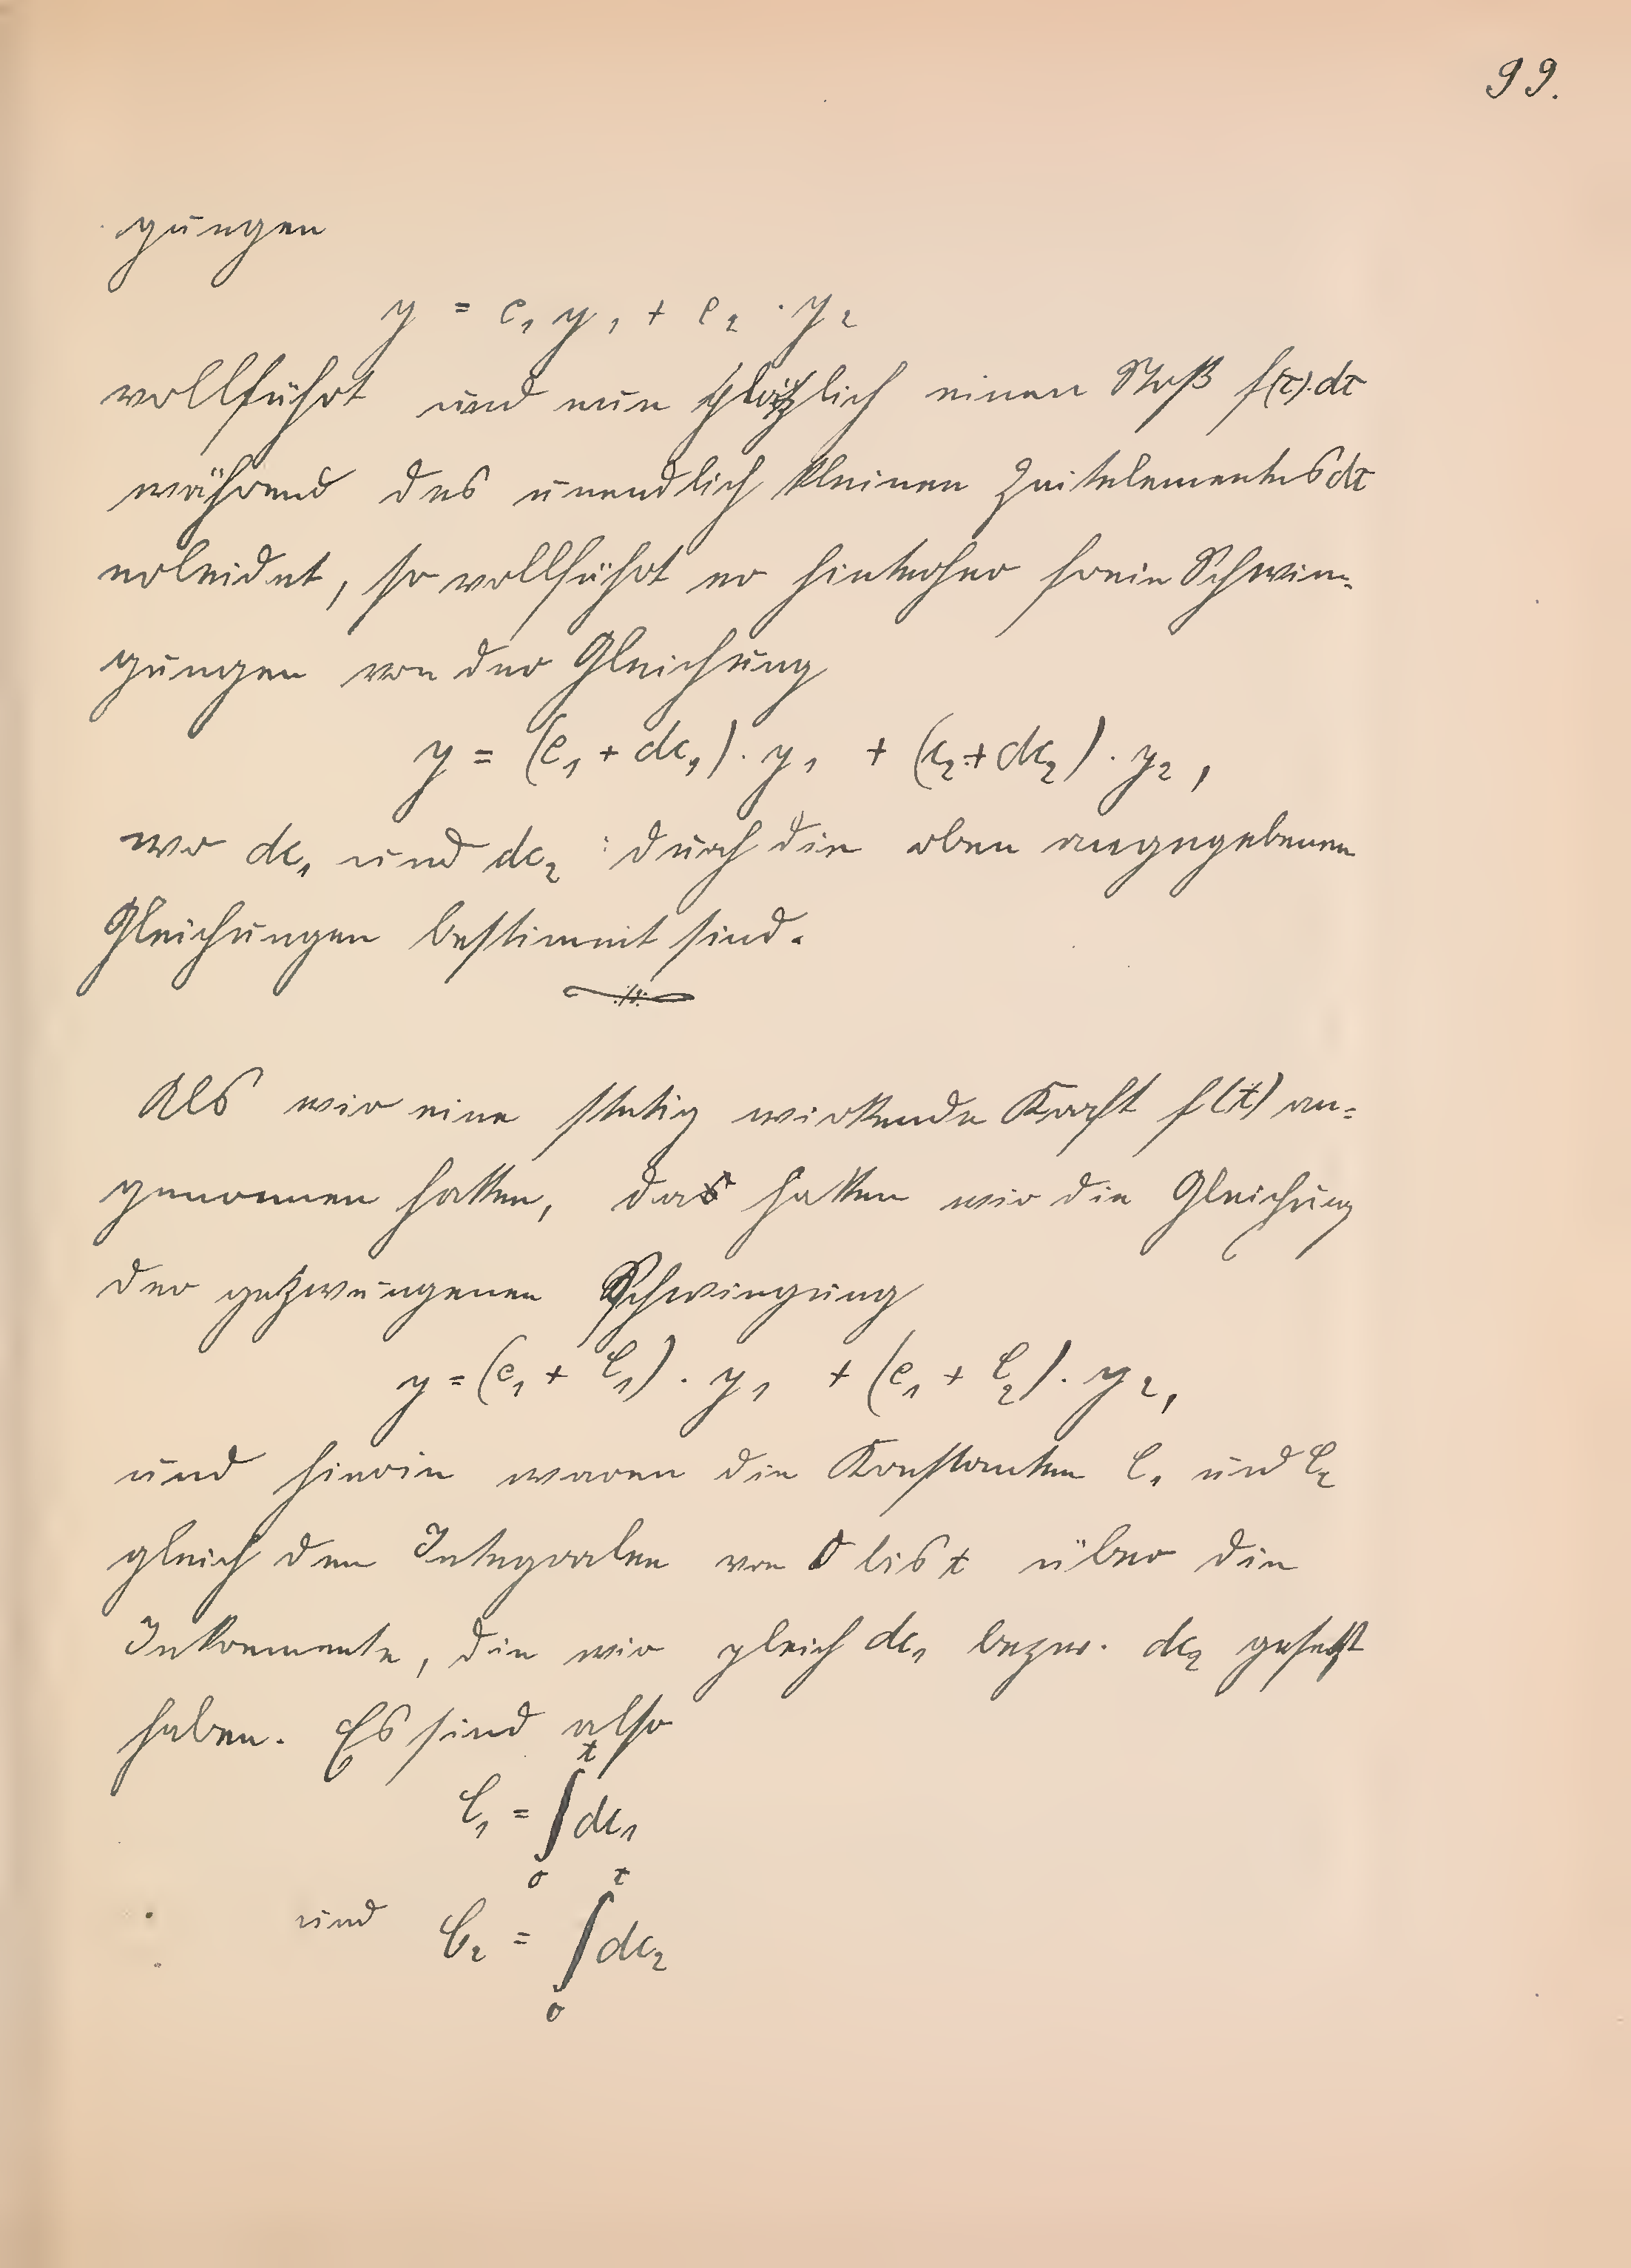 99.
gungen
y = c₁ y₁ + c₂ · y₂
vollführt und nun plötzlich einen Stoß f(τ).dτ
während des unendlich kleinen Zeitelementes dτ
erleidet, so vollführt er hinterher freie Schwin-
gungen von der Gleichung
y = (c₁ + dc₁) · y₁ + (c₂ + dc₂) · y₂ ,
wo dc₁ und dc₂ durch die oben angegebenen
Gleichungen bestimmt sind.
Als wir eine stetig wirkende Kraft f(t) an=
genommen hatten, da hatten wir die Gleichung
der gezwungenen Schwingung
y = (c₁ + C₁) · y₁ + (c₁ + C₂) · y₂ ,
und hierin waren die Konstanten C₁ und C₂
gleich den Integralen von 0 bis t über die
Inkremente, die wir gleich dc₁ bezw. dc₂ gesetzt
haben. Es sind also
C₁ = ∫₀ᵗ dc₁
und C₂ = ∫₀ᵗ dc₂